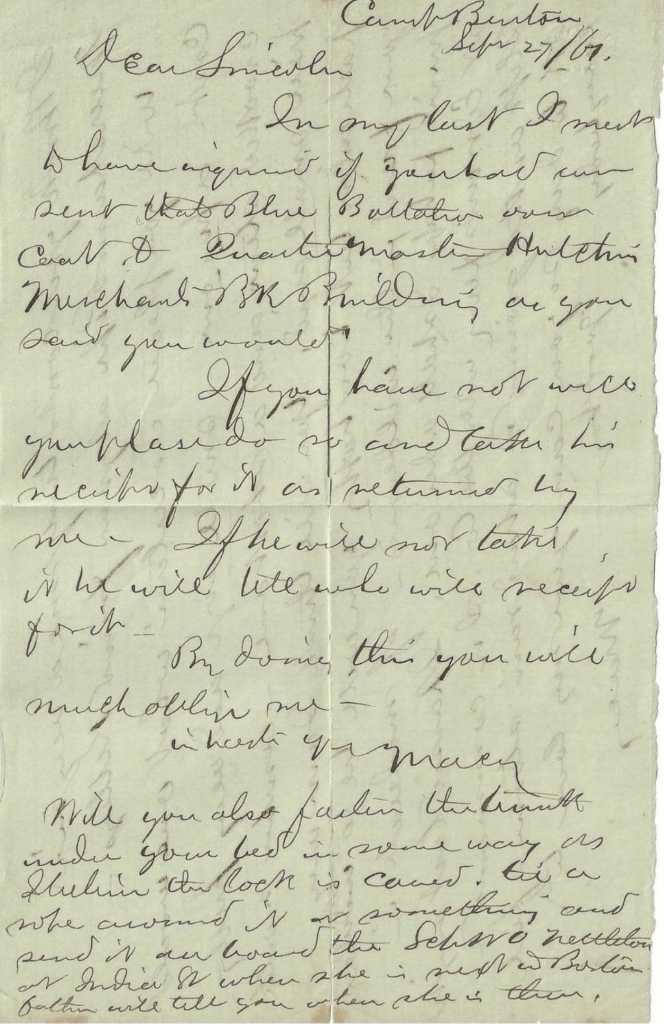 Camp Benton
Sept 27/61.
Dear Lincoln
In my last I meant
to have inquired if you had ever
sent that Blue Battalion over
Coat to Quarter Master Hutchins
Merchants BK Building as you
said you would
If you have not will
you please do so and take his
receipt for it as returned by
me – If he will not take
it he will tell who will receipt
for it –
By doing this you will
much oblige me –
in haste yrs Macy
Will you also fasten the trunk
under your bed in some way as
I believe the lock is . tie a
rope around it or something and
send it on board the Schr Nettleton
at India St when she is next in Boston
father will tell you when she is there.